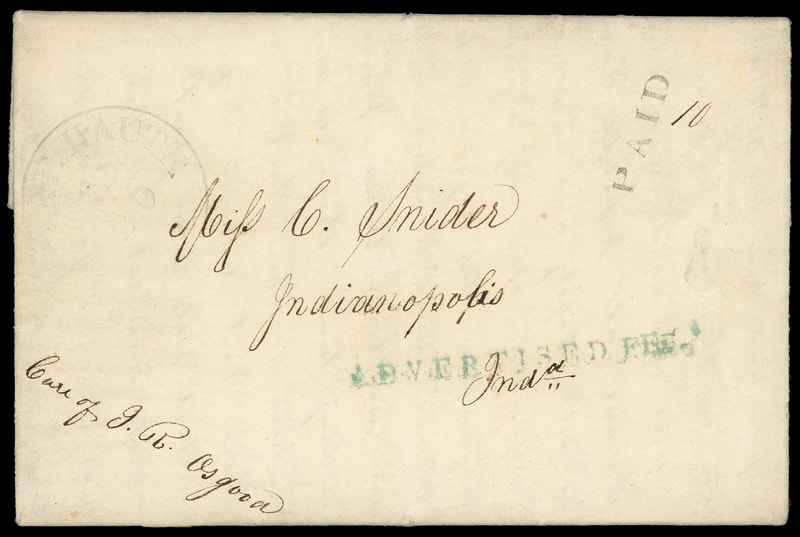 HAUTE
PAID
10
Miss C. Snider
Indianopolis
ADVERTISED FEB.
Inda
Care of J. R. Osgood